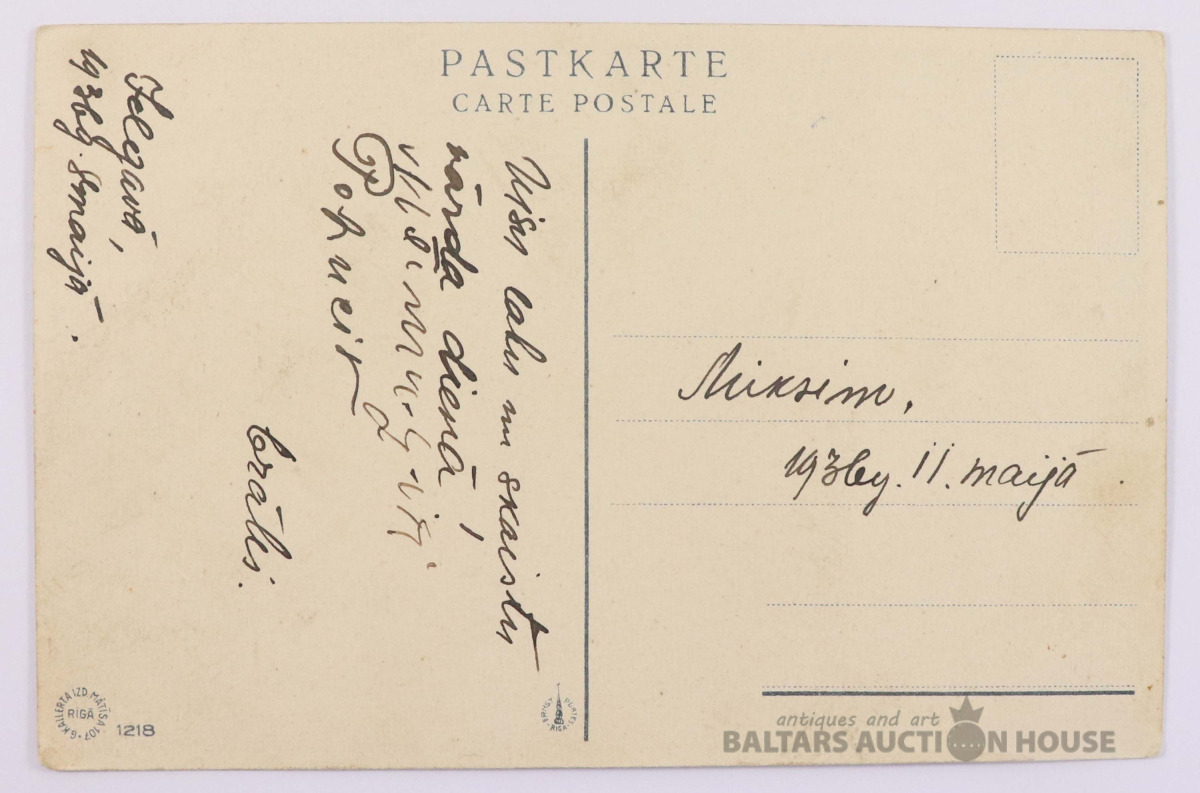 PASTKARTE
CARTE POSTALE
Visu labu un skaistu
vārda dienā,
Brālis.
Jelgavā,
1936g. 8maijā.
Miksim,
1936g. 11. maijā.
G.KAILERTA IZD. MATĪSA 107
RĪGĀ
1218
RIGA
antiques and art
BALTARS AUCTION HOUSE